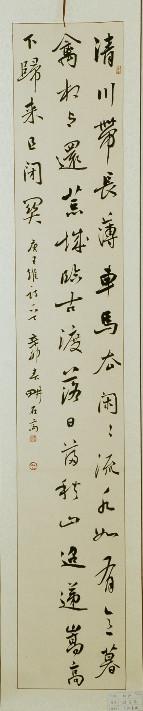 清川帶長薄車馬去閑〻流水如有意暮
禽相与還荒城臨古渡落日滿秋山迢遞嵩高
下歸来且闭關
唐王維詩一首 辛卯春